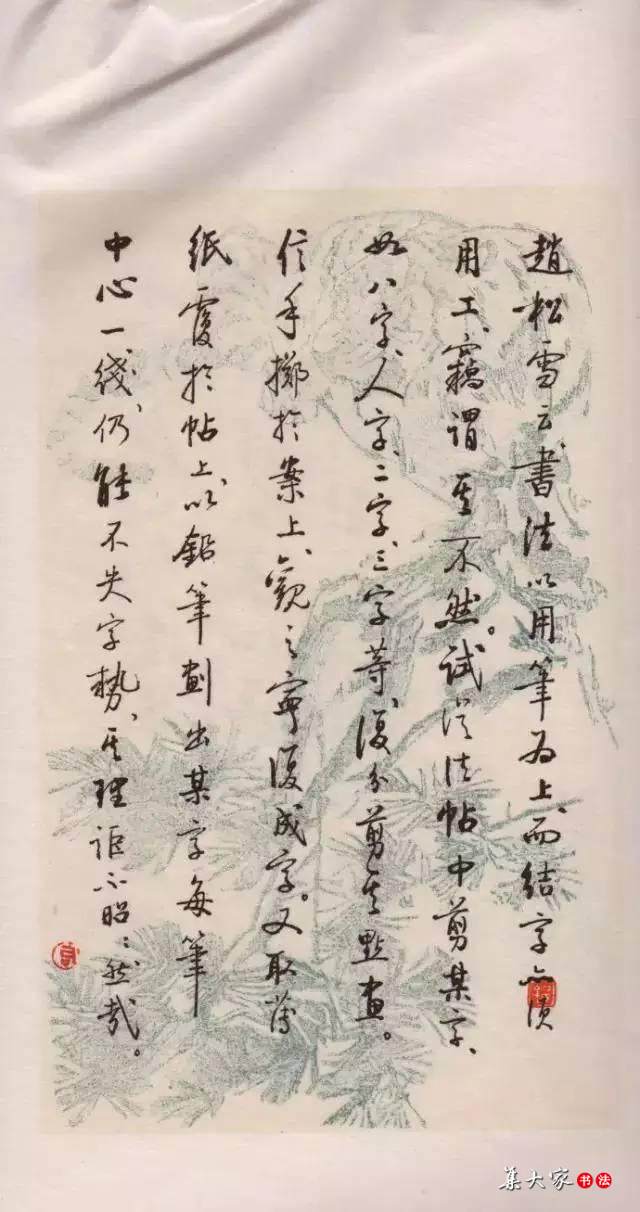 趙松雪云、書法以用筆為上、而結字亦須
用工、竊謂其不然。試從法帖中剪某字、
如八字、人字、二字、三字等、復分剪其點畫。
信手擲於案上、觀之寧復成字。又取薄
紙覆於帖上、以鉛筆劃出某字每筆
中心一綫、仍能不失字勢、其理詎不昭昭然哉。
集大家书法